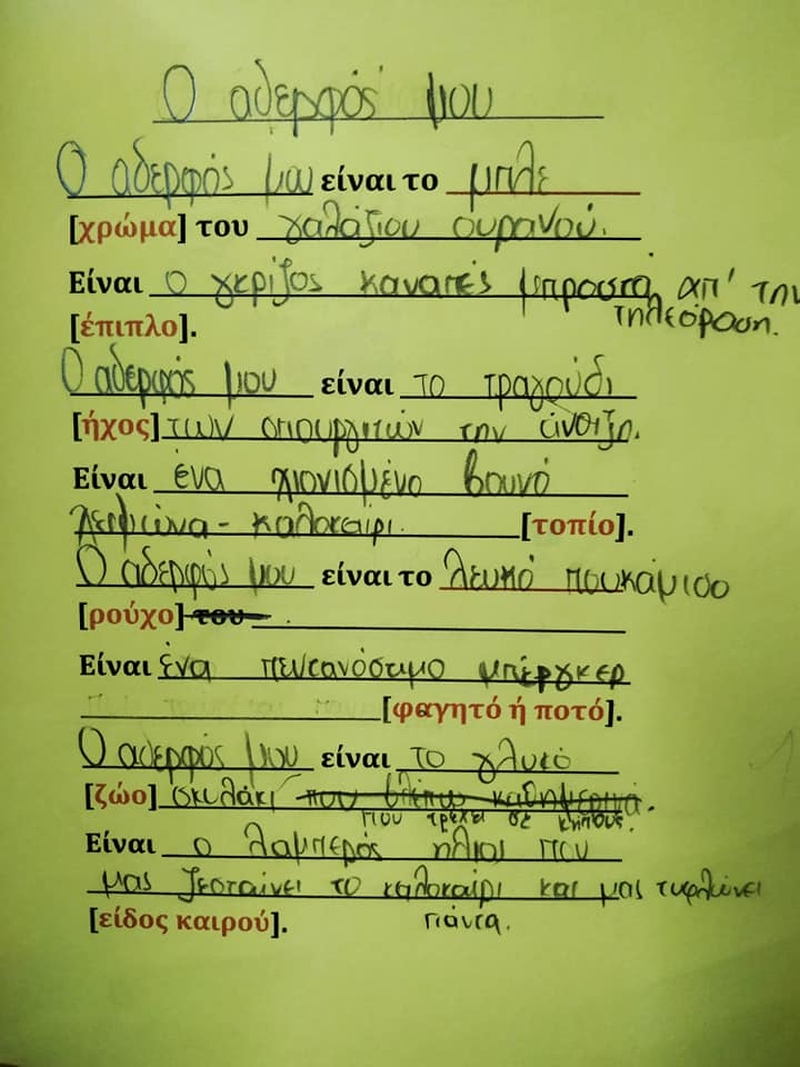 Ο αδερφός μου
Ο αδερφός μου είναι το μπλε
[χρώμα] του γαλάζιου ουρανού.
Είναι ο γκρίζος καναπές μπροστά απ' την
τηλεόραση.
[έπιπλο].
Ο αδερφός μου είναι το τραγούδι
[ήχος] των σπουργιτιών την άνοιξη.
Είναι ένα χιονισμένο βουνό
χειμώνα - καλοκαίρι. [τοπίο].
Ο αδερφός μου είναι το λευκό πουκάμισο
[ρούχο] του .
Είναι ένα πεντανόστιμο μπέργκερ
[φαγητό ή ποτό].
Ο αδερφός μου είναι το γλυκό
[ζώο] σκυλάκι που βλέπω καθημερινά.
που τρέχει σε κήπους.
Είναι ο λαμπερός ήλιος που
μας ζεσταίνει το καλοκαίρι και μας τυφλώνει
[είδος καιρού]. πάντα.